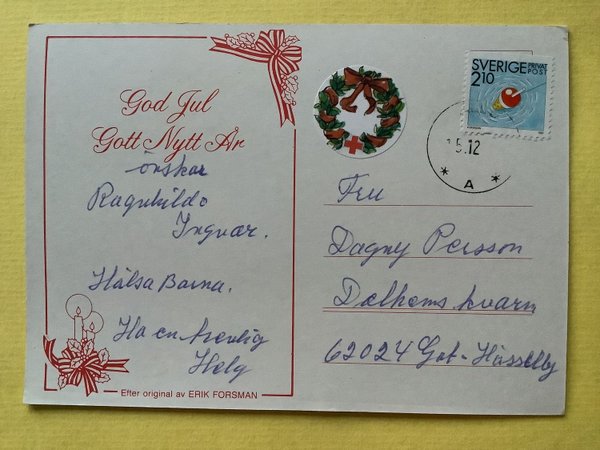 God Jul
Gott Nytt År
önskar
Ragnhildo
Ingvar.
Hälsa Barna.
Ha en trevlig
Helg
Efter original av ERIK FORSMAN
SVERIGE PRIVAT POST
2.10
15.12
* A *
Fru
Dagny Persson
Dalhems kvarn
62024 Got-Hässelby